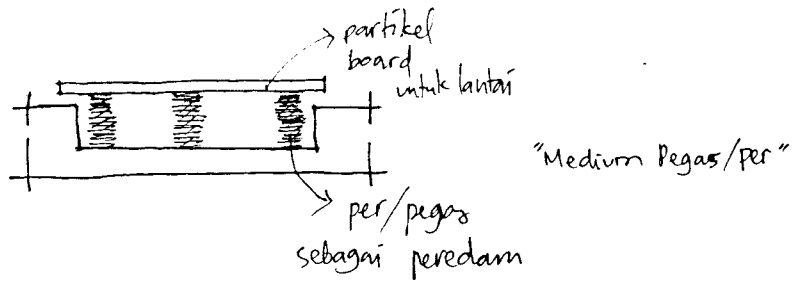 partikel
board
untuk lantai
"Medium Pegas/per"
per/pegas
sebagai peredam